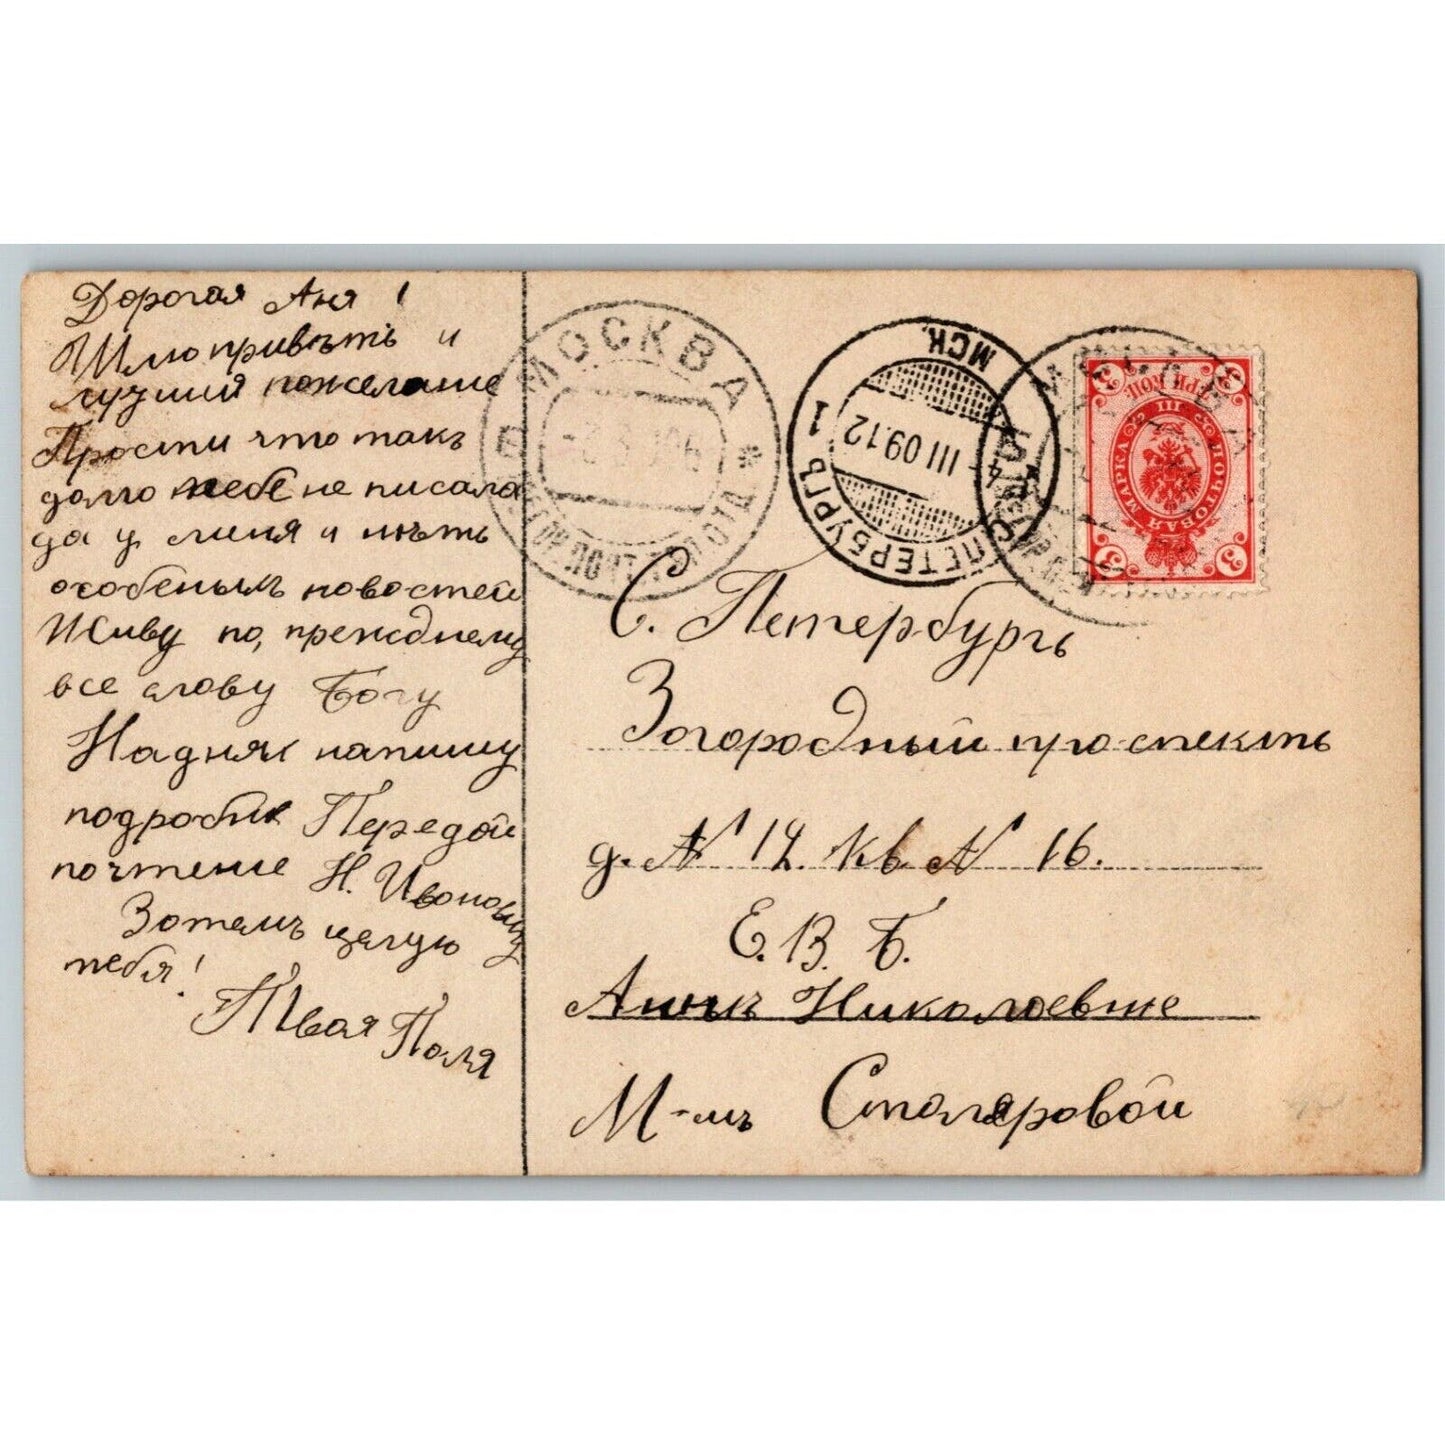 Дорогая Аня!
Шлю привѣтъ и
лучшия пожелание
Прости что такъ
долго тебе не писала
да у меня и нѣтъ
особеныхъ новостей
Живу по, прежднему
все слову Богу
Надняхъ напишу
подробнѣ Передой
почтение Н. Ивоновну
Зотемъ целую
тебя!
Твоя Поля
МОСКВА
*
С. ПЕТЕРБУРГЪ
1
МСК.
4-III 09.12
ПОЧТОВАЯ МАРКА
III
ТРИ КОП.
3 3
3 3
С. Петербургъ
Зогородный проспектъ
д. № 14. кв № 16.
Е. В. Б.
Аннѣ Николоевне
М-мъ Столяровой